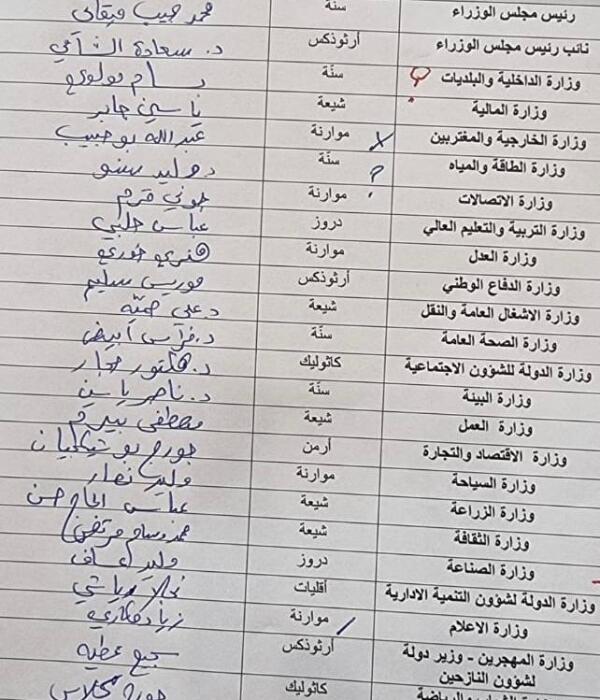 رئيس مجلس الوزراء سنّة محمد نجيب ميقاتي
نائب رئيس مجلس الوزراء أرثوذكس د. سعادة الشامي
وزارة الداخلية والبلديات سنّة بسام مولوي
وزارة المالية شيعة ياسين جابر
وزارة الخارجية والمغتربين موارنة عبدالله بو حبيب
وزارة الطاقة والمياه سنّة د. وليد سنو
وزارة الاتصالات موارنة جوني قرم
وزارة التربية والتعليم العالي دروز عباس حلبي
وزارة العدل موارنة هنري خوري
وزارة الدفاع الوطني أرثوذكس موريس سليم
وزارة الاشغال العامة والنقل شيعة د. علي حميّه
وزارة الصحة العامة سنّة د. فراس أبيض
وزارة الدولة للشؤون الاجتماعية كاثوليك د. هكتور حجار
وزارة البيئة سنّة د. ناصر ياسين
وزارة العمل شيعة مصطفى بيرم
وزارة الاقتصاد والتجارة أرمن جورج بوشيكيان
وزارة السياحة موارنة وليد نصار
وزارة الزراعة شيعة عباس الحاج حسن
وزارة الثقافة شيعة محمد وسام مرتضى
وزارة الصناعة دروز وليد عساف
وزارة الدولة لشؤون التنمية الادارية أقليات نجلا رياشي
وزارة الاعلام موارنة زياد مكاري
وزارة المهجرين - وزير دولة أرثوذكس سجيع عطيه
لشؤون النازحين
كاثوليك جورج كلاس